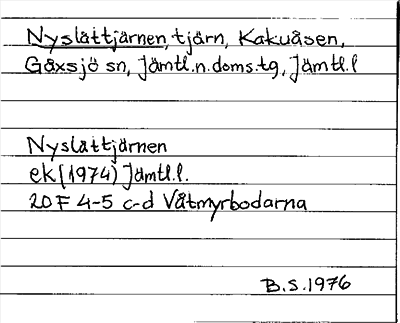 Nyslåttjärnen, tjärn, Kakuåsen,
Gåxsjö sn, Jämtl.n.doms.tg, Jämtl.l
Nyslåttjärnen
ek (1974) Jämtl.l.
20F 4-5 c-d Våtmyrbodarna
B.S.1976